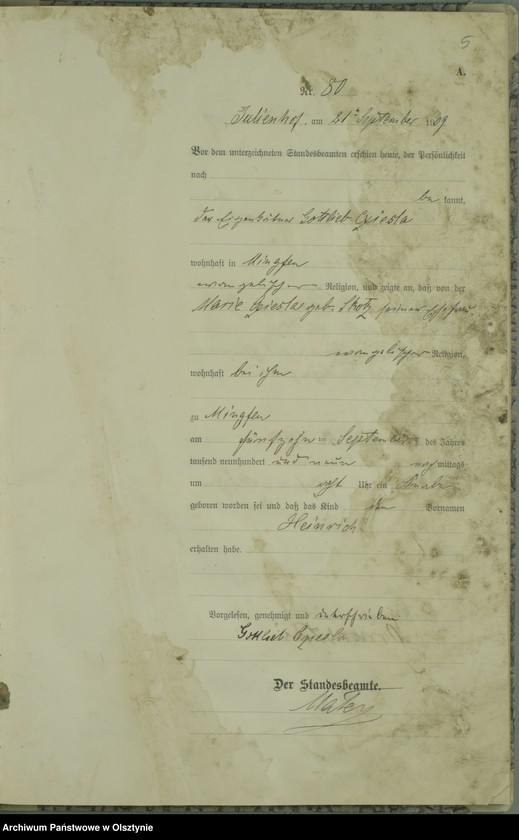 5
A.
Nr. 80
Julienhof, am 21ⁿ September 1909
Vor dem unterzeichneten Standesbeamten erschien heute, der Persönlichkeit
nach
be kannt,
der Eigenkätner Gottlieb
wohnhaft in Mingfen
evangelischer Religion, und zeigte an, daß von der
Marie geb. seiner Ehefrau
evangelischer Religion,
wohnhaft bei ihm
zu Mingfen
am fünfzehn ten September des Jahres
tausend neunhundert und neun nachmittags
um acht Uhr ein Knabe
geboren worden sei und daß das Kind den Vornamen
Heinrich
erhalten habe.
Vorgelesen, genehmigt und unterschrieben
Gottlieb
Der Standesbeamte.
Archiwum Państwowe w Olsztynie